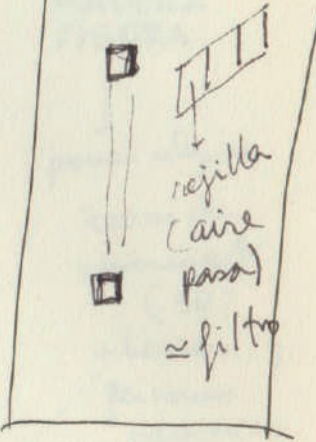 rejilla
(aire
pasa)
≃ filtro